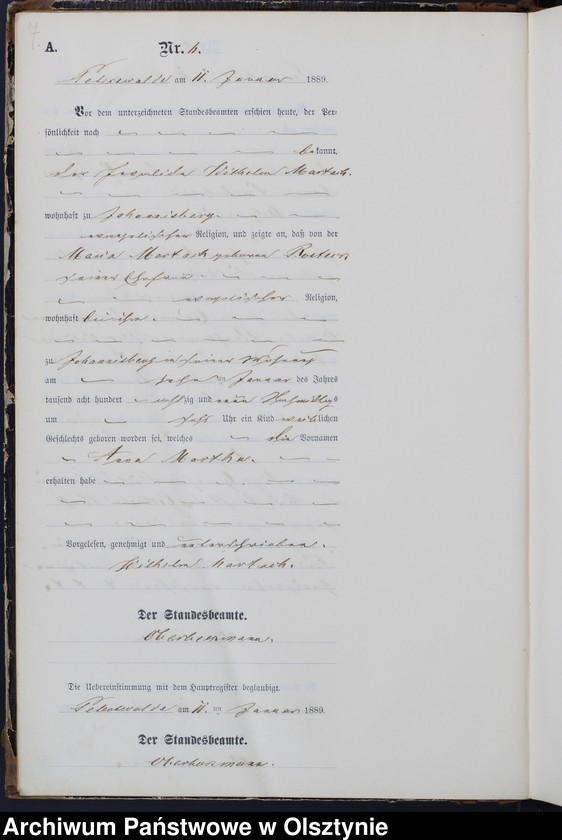 7.
A. Nr. 4.
am 11. Januar 1889.
Vor dem unterzeichneten Standesbeamten erschien heute, der Per-
sönlichkeit nach
bekannt,
der Wilhelm Martach.
wohnhaft zu Johannisberg.
evangelischer Religion, und zeigte an, daß von der
Maria Martach geborenen
seiner Ehefrau
evangelischer Religion,
wohnhaft bei ihm.
zu Johannisberg in seiner Wohnung
am zehn ten Januar des Jahres
tausend acht hundert achtzig und neun Nachmittags
um Uhr ein Kind weiblichen
Geschlechts geboren worden sei, welches die Vornamen
Anna Martha.
erhalten habe
Vorgelesen, genehmigt und unterschrieben.
Wilhelm Martach.
Der Standesbeamte.
Die Uebereinstimmung mit dem Hauptregister beglaubigt.
am 11. ten Januar 1889.
Der Standesbeamte.
Archiwum Państwowe w Olsztynie